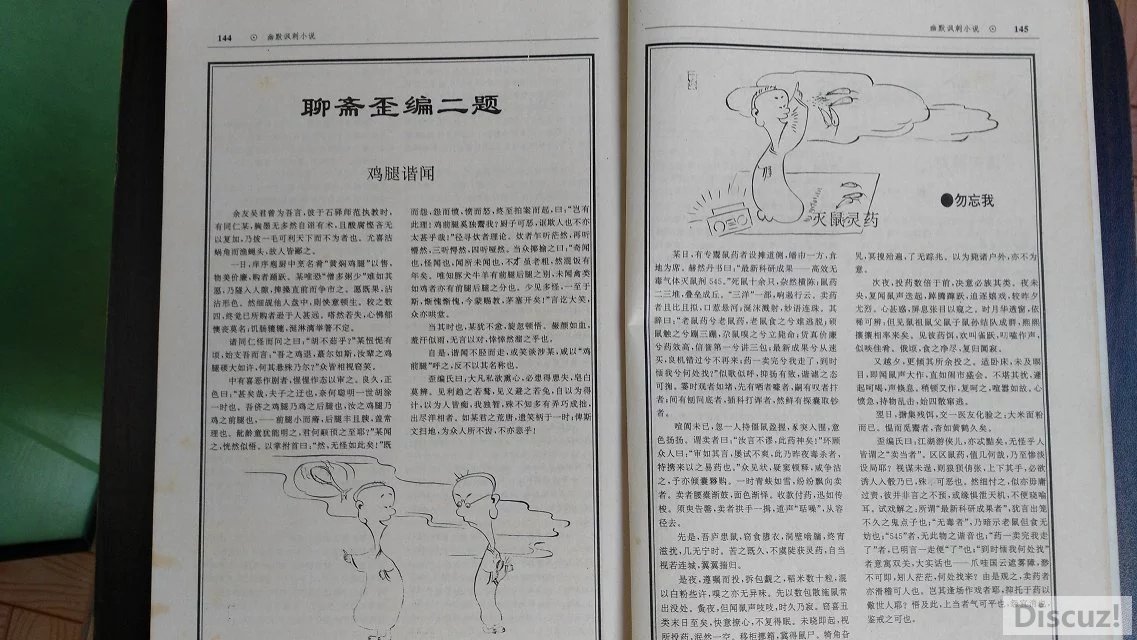 144 ⊙ 幽默讽刺小说
聊斋歪编二题
鸡腿谐闻
余友吴君曾为吾言,彼于石驿师范执教时,
有同仁某,胸墨无多然自诩有术,且酸腐悭吝无
以复加,乃拔一毛可利天下而不为者也。尤喜沾
蜗角而渔蝇头,故人皆鄙之。
一日,庠序庖厨中烹名肴“黄焖鸡腿”以售,
物美价廉,购者踊跃。某唯恐“僧多粥少”难如其
愿,乃随人入隙,捧搡直前而争市之。愿既果,沾
沾形色。然细觑他人盘中,则怏意顿生。较之数
四,终觉已所购者逊于人甚远。嗒然若失,心怫郁
懊丧莫名;饥肠辘辘,涎淋漓举箸不定。
诸同仁怪而问之曰:“胡不茹乎?”某怛怩有
顷,始支吾而言:“吾之鸡退,蕞尔如斯,汝辈之鸡
腿硕大如许,何其悬殊乃尔?”众皆相视窃笑。
中有喜恶作剧者,惺惺作态以审之。良久,正
色曰:“甚矣哉,夫子之迂也,奈何聪明一世胡涂
一时也。吾侪之鸡腿乃鸡之后腿也,汝之鸡腿乃
鸡之前腿也,——前腿小而瘠,后腿丰且腴,盖常
理也。龀龄童犹能明之,君何颟顸之至耶?”某闻
之,恍然似悟。以掌拊首曰:“然,无怪如此矣!”既
而怨,怨而愤,愤而怒,终至拍案而起,曰:“岂有
此理!鸡前腿奚独鬻我?厨子可恶,诓欺人也不亦
太甚乎哉!”径寻炊者理论。炊者乍听茫然,再听
懵然,三听愕然,四听哑然。当众揶揄之曰:“奇闻
也,怪闻也,闻所未闻也,不才虽老粗,然混饭有
年矣。唯知豚犬牛羊有前腿后腿之别,未闻禽类
如鸡者亦有前腿后腿之分也。少见多怪,一至于
斯,惭愧惭愧,今蒙赐教,茅塞开矣!”言讫大笑,
众亦哄堂。
当其时也,某犹不怠,旋忽顿悟。赧颜如血,
羞汗似雨,无言以对,悻悻然趄之乎也。
自是,谐闻不胫而走,或笑谈涉某,咸以“鸡
前腿”呼之,反不以其名称也。
歪编氏曰:大凡私欲熏心,必患得患失,皂白
莫辨。见利趋之若鹜,见义避之若兔,自以为得
计,以为人皆痴,我独智,殊不知多有弄巧成拙,
出尽洋相者。如某君之荒唐,遗笑柄于一时;俾斯
文扫地,为众人所不齿,不亦恶乎!
幽默讽刺小说 ⊙ 145
●勿忘我
灭鼠灵药
某日,有专鬻鼠药者设摊道侧,幡巾一方,席
地为席。赫然丹书曰:“最新科研成果——高效无
毒气体灭鼠剂545。”死鼠十余只,杂然横陈;鼠药
二三堆,叠垒成丘。“三洋”一部,响遏行云。卖药
者且比且拟,口惹悬河;涎沫溅射,妙语连珠。其
辞曰:“老鼠药兮老鼠药,老鼠食之兮难逃脱;硕
鼠触之兮蹦三蹦,尕鼠嗅之兮立毙命;货真价廉
兮药效高,信誉第一兮讲三包;最新成果兮从速
买,良机错过兮不再来;药一卖完兮我走了,到时
恼我兮何处找?”似歌似呼,抑扬有致,谐谑之态
可掬。萋时观者如堵,先有哂者噻者,嗣有叹者打
者;间有刨问底者,插科打诨者,然鲜有探囊取钞
者。
喧阗未已,忽一人持僵鼠盈握,豕突人围,意
色扬扬。谓卖者曰:“汝言不谬,此药神矣!”环顾
众人曰:“审如其言,屡试不爽,此乃昨夜毒杀者,
特携来以之易药也。”众见状,疑窦顿释,咸争沽
之,予亦倾囊夥购。一时青蚨如雪,纷纷飘向卖
者。卖者腰橐渐鼓,面色渐怿。收款付药,迅如传
梭。须臾告罄,卖者拱手一揖,道声“聒噪”,从容
径去。
先是,吾庐患鼠,窃食隳衣,洞壁啮牖,终宵
滋扰,几无宁时。苦之既久,不虞陡获灵药,自当
视若连城,翼翼揣归。
是夜,遵嘱而投,拆包觑之,稻米数十粒,混
以白粉些许,嗅之亦无异味。先以数包散施鼠常
出没处。夤夜,但闻鼠声吱吱,时久乃寂。窃喜丑
类末日至矣,快意撩心,不复得眠。未晓即起,视
所投药,泯然一空。移柜搜箱,冀得鼠尸。犄角旮
旯,冥搜殆遍,了无踪兆。以为毙诸户外,亦不为
意。
次夜,投药数倍于前,决意必族其类。夜未
央,复闻鼠声迭起,踔腾蹿跃,追逐嬉戏,较昨夕
尤烈。心甚惑,屏息张目以窥之。时月华透窗,依
稀可辨;但见鼠祖鼠父鼠子鼠孙结队成群,熙熙
攘攘相率来矣。见彼药饵,欢叫雀跃,叼嚅作声,
似啖佳肴。俄顷,食之净尽,复归阒寂。
又越夕,更铺其所余投之。适卧床,未及瞑
目,即闻鼠声大作,直如闹市盛会。不堪其扰,遽
起叱喝,声倏息。稍顷又作,复呵之,喧嚣如故。心
愤急,持物乱击,始四散窜逃。
翌日,撍集残饵,交一医友化验之;大米面粉
而已。愠而觅鬻者,杳如黄鹤久矣。
歪编氏曰:江湖游侠儿,亦忒黠矣,无怪乎人
皆谓之“卖当者”。区区鼠药,值几何哉,乃至惨淡
设局耶?视谋未遂,则狼狈俏张,上下其手,必欲
诱人入彀乃已,殊可恶也。然细忖之,似亦毋庸
过责,彼并非言之不预,或缘惧泄天机,不便晓喻
耳。试戏解之:所谓“最新科研成果者”,犹言出笼
不久之鬼点子也;“无毒者”,乃暗示老鼠但食无
妨也;“545”者,无此物之谐音也;“药一卖完我走
了”者,已明言一走便“了”也;“到时恼我何处找”
者意寓双关,大实话也——爪哇国云遮雾障,渺
不可即,知人茫茫,何处找来?由是观之,卖药者
亦滑稽可人也。岂其逢场作戏者耶,抑托于药以
儆世人耶?悟及此,上当者气可平也,
鉴戒之可也。
Discuz!